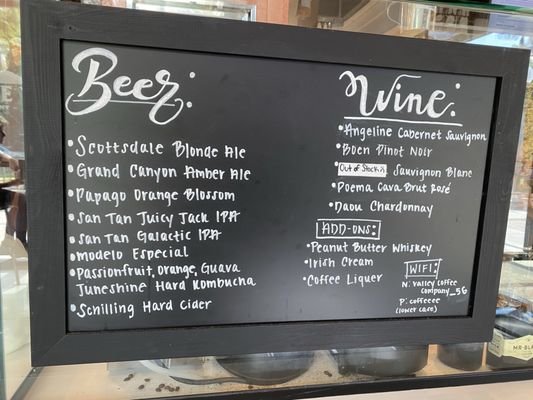 Beer:
• Scottsdale Blonde Ale
• Grand Canyon Amber Ale
• Papago Orange Blossom
• San Tan Juicy Jack IPA
• San Tan Galactic IPA
• modelo Especial
• Passionfruit, Orange, Guava
Juneshine Hard Kombucha
• Schilling Hard Cider
Wine:
• Angeline Cabernet Sauvignon
• Boen Pinot Noir
• Out of Stock Sauvignon Blanc
• Poema Cava Brut Rosé
• Daou Chardonnay
ADD-ONS:
• Peanut Butter Whiskey
• Irish Cream
• Coffee Liquer
WIFI:
N: Valley Coffee
Company_5G
P: coffeeee
(lower case)